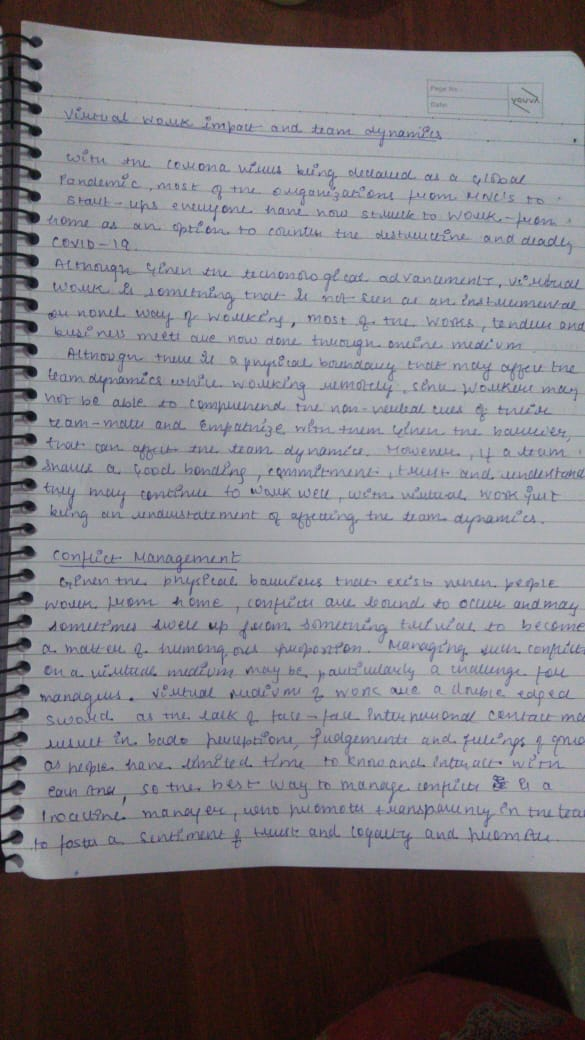 Page No:
Date:
YOUVA
Virtual work impact and team dynamics
With the corona virus being declared as a global
Pandemic, most of the organizations from MNC's to
start-ups everyone have now struck to work-from
home as an option to counter the destructive and deadly
COVID-19.
Although given the technological advancements, virtual
work is something that is not seen as an instrumental
or novel way of working, most of the works, tenders and
business meets are now done through online medium.
Although there is a physical boundary that may affect the
team dynamics while working remotely, since workers may
not be able to comprehend the non-verbal cues of their
team-mates and empathize with them given the barrier,
that can affect the team dynamics. However, if a team
shares a good bonding, commitment, trust and understand
they may continue to work well, with virtual work just
being an understatement of affecting the team dynamics.
Conflict Management
Given the physical barriers that exists when people
work from home, conflicts are bound to occur and may
sometimes swell up from something trivial to become
a matter of humongous proportion. Managing such conflict
on a virtual medium may be particularly a challenge for
managers. Virtual mediums of work are a double edged
sword as the lack of face-face interpersonal contact ma
result in bad perceptions, judgements and feelings of
as people have limited time to know and interact with
each other, so the best way to manage conflicts is a
manager, who promotes transparency in the tea
to foster a sentiment of trust and loyalty and promote